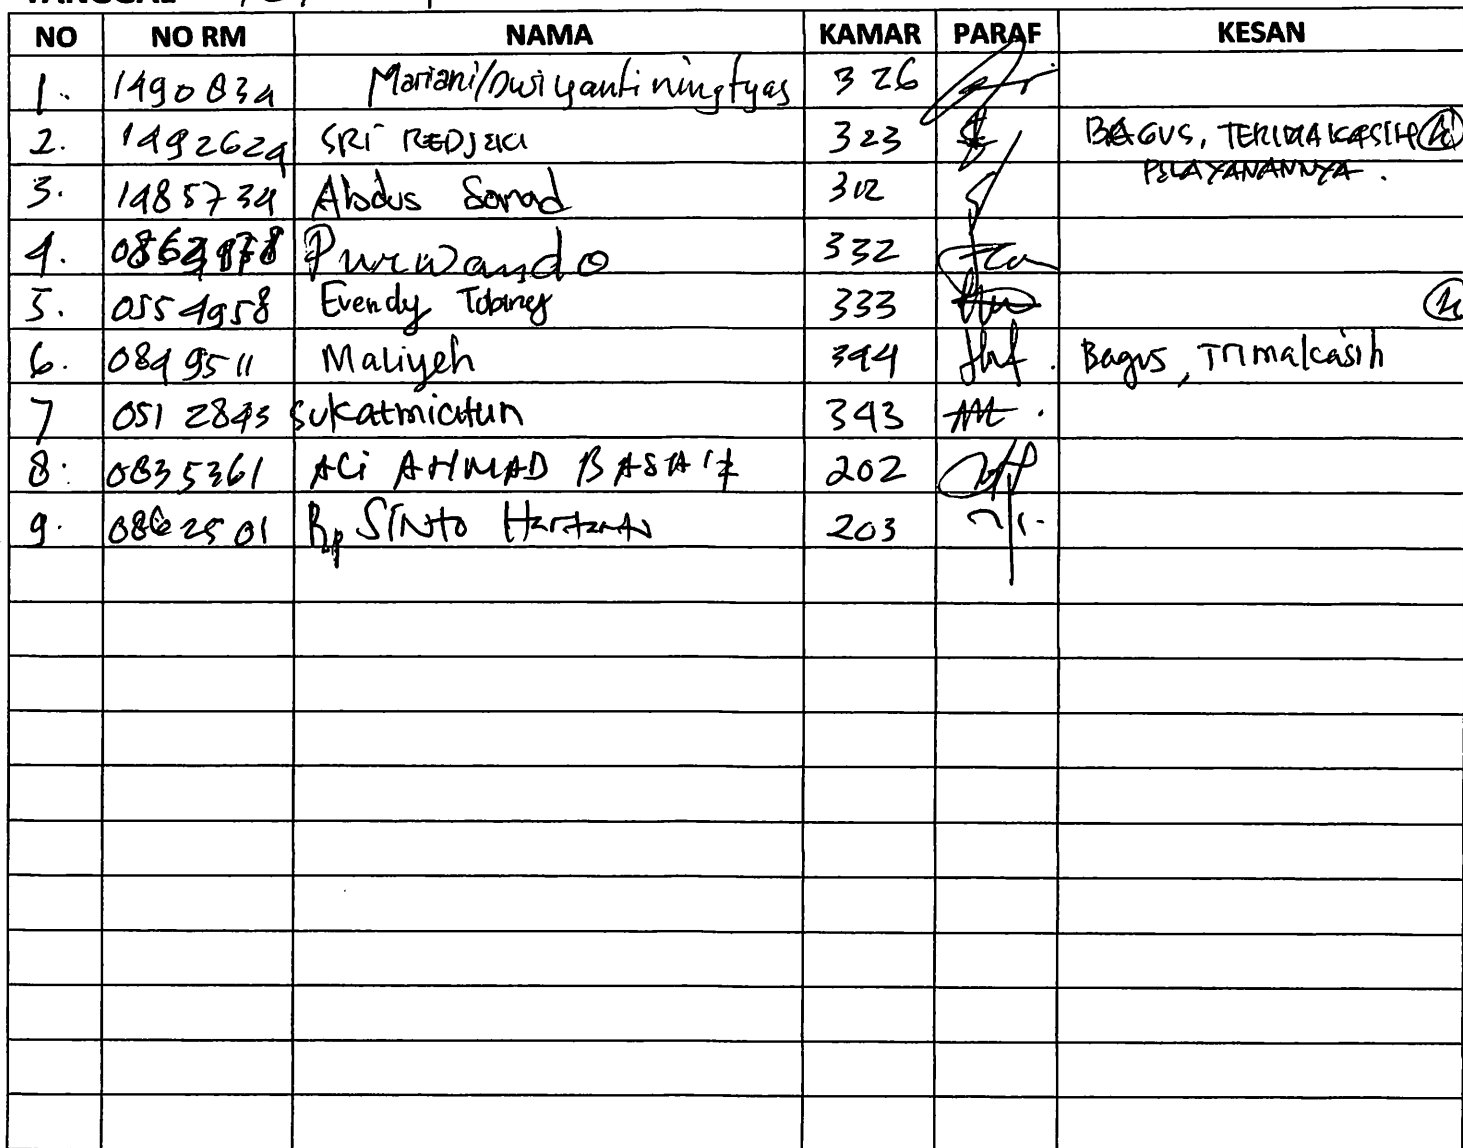 NO NO RM NAMA KAMAR PARAF KESAN
1. 1490834 Mariani/Dwiyantiningtyas 326
2. 1492624 SRI REDJEKI 323 BAGUS, TERIMAKASIH
PELAYANANNYA.
3. 1485734 Abdus Somad 312
4. 332
5. 0554958 Evendy 333
6. 0849511 Maliyeh 344 Bagus, Trimakasih
7 0512843 Sukatmiatun 343
8. 0835361 ALI AHMAD 202
9. 0862501 Bp SINTO 203